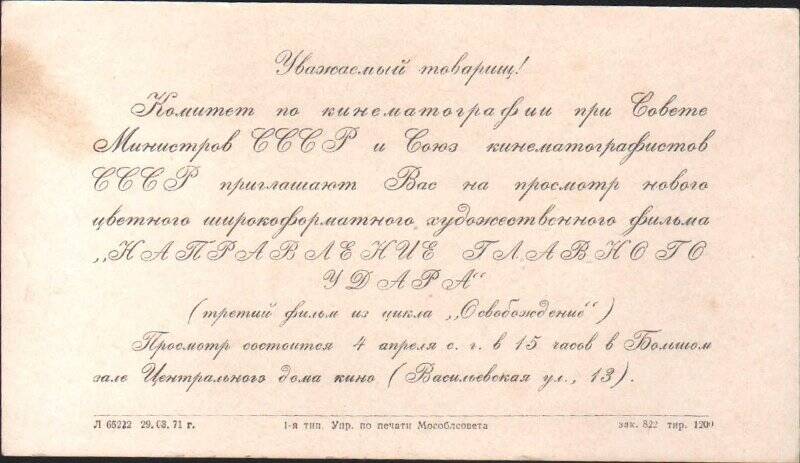 Уважаемый товарищ!
Комитет по кинематографии при Совете
Министров СССР и Союз кинематографистов
СССР приглашают Вас на просмотр нового
цветного широкоформатного художественного фильма
„НАПРАВЛЕНИЕ ГЛАВНОГО
УДАРА“
(третий фильм из цикла „Освобождение“)
Просмотр состоится 4 апреля с. г. в 15 часов в Большом
зале Центрального дома кино (Васильевская ул., 13).
Л 65222 29.03.71 г. 1-я тип. Упр. по печати Мособлсовета зак. 822 тир. 1200